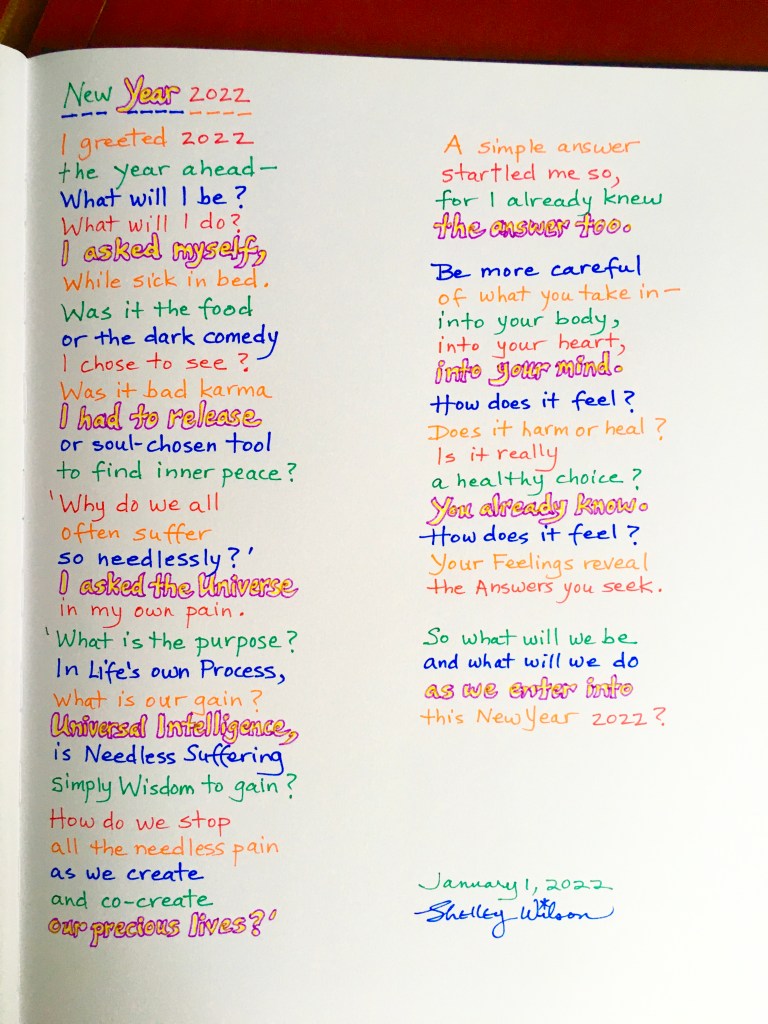 New Year 2022
I greeted 2022
the year ahead—
What will I be?
What will I do?
I asked myself,
While sick in bed.
Was it the food
or the dark comedy
I chose to see?
Was it bad karma
I had to release
or soul-chosen tool
to find inner peace?
'Why do we all
often suffer
so needlessly?'
I asked the Universe
in my own pain.
'What is the purpose?
In Life's own Process,
what is our gain?
Universal Intelligence,
is Needless Suffering
Simply Wisdom to gain?
How do we stop
all the needless pain
as we create
and co-create
our precious lives?'
A simple answer
startled me so,
for I already knew
the answer too.
Be more careful
of what you take in—
into your body,
into your heart,
into your mind.
How does it feel?
Does it harm or heal?
Is it really
a healthy choice?
You already know.
How does it feel?
Your Feelings reveal
the Answers you seek.
So what will we be
and what will we do
as we enter into
this New Year 2022?
January 1, 2022
Shelley Wilson